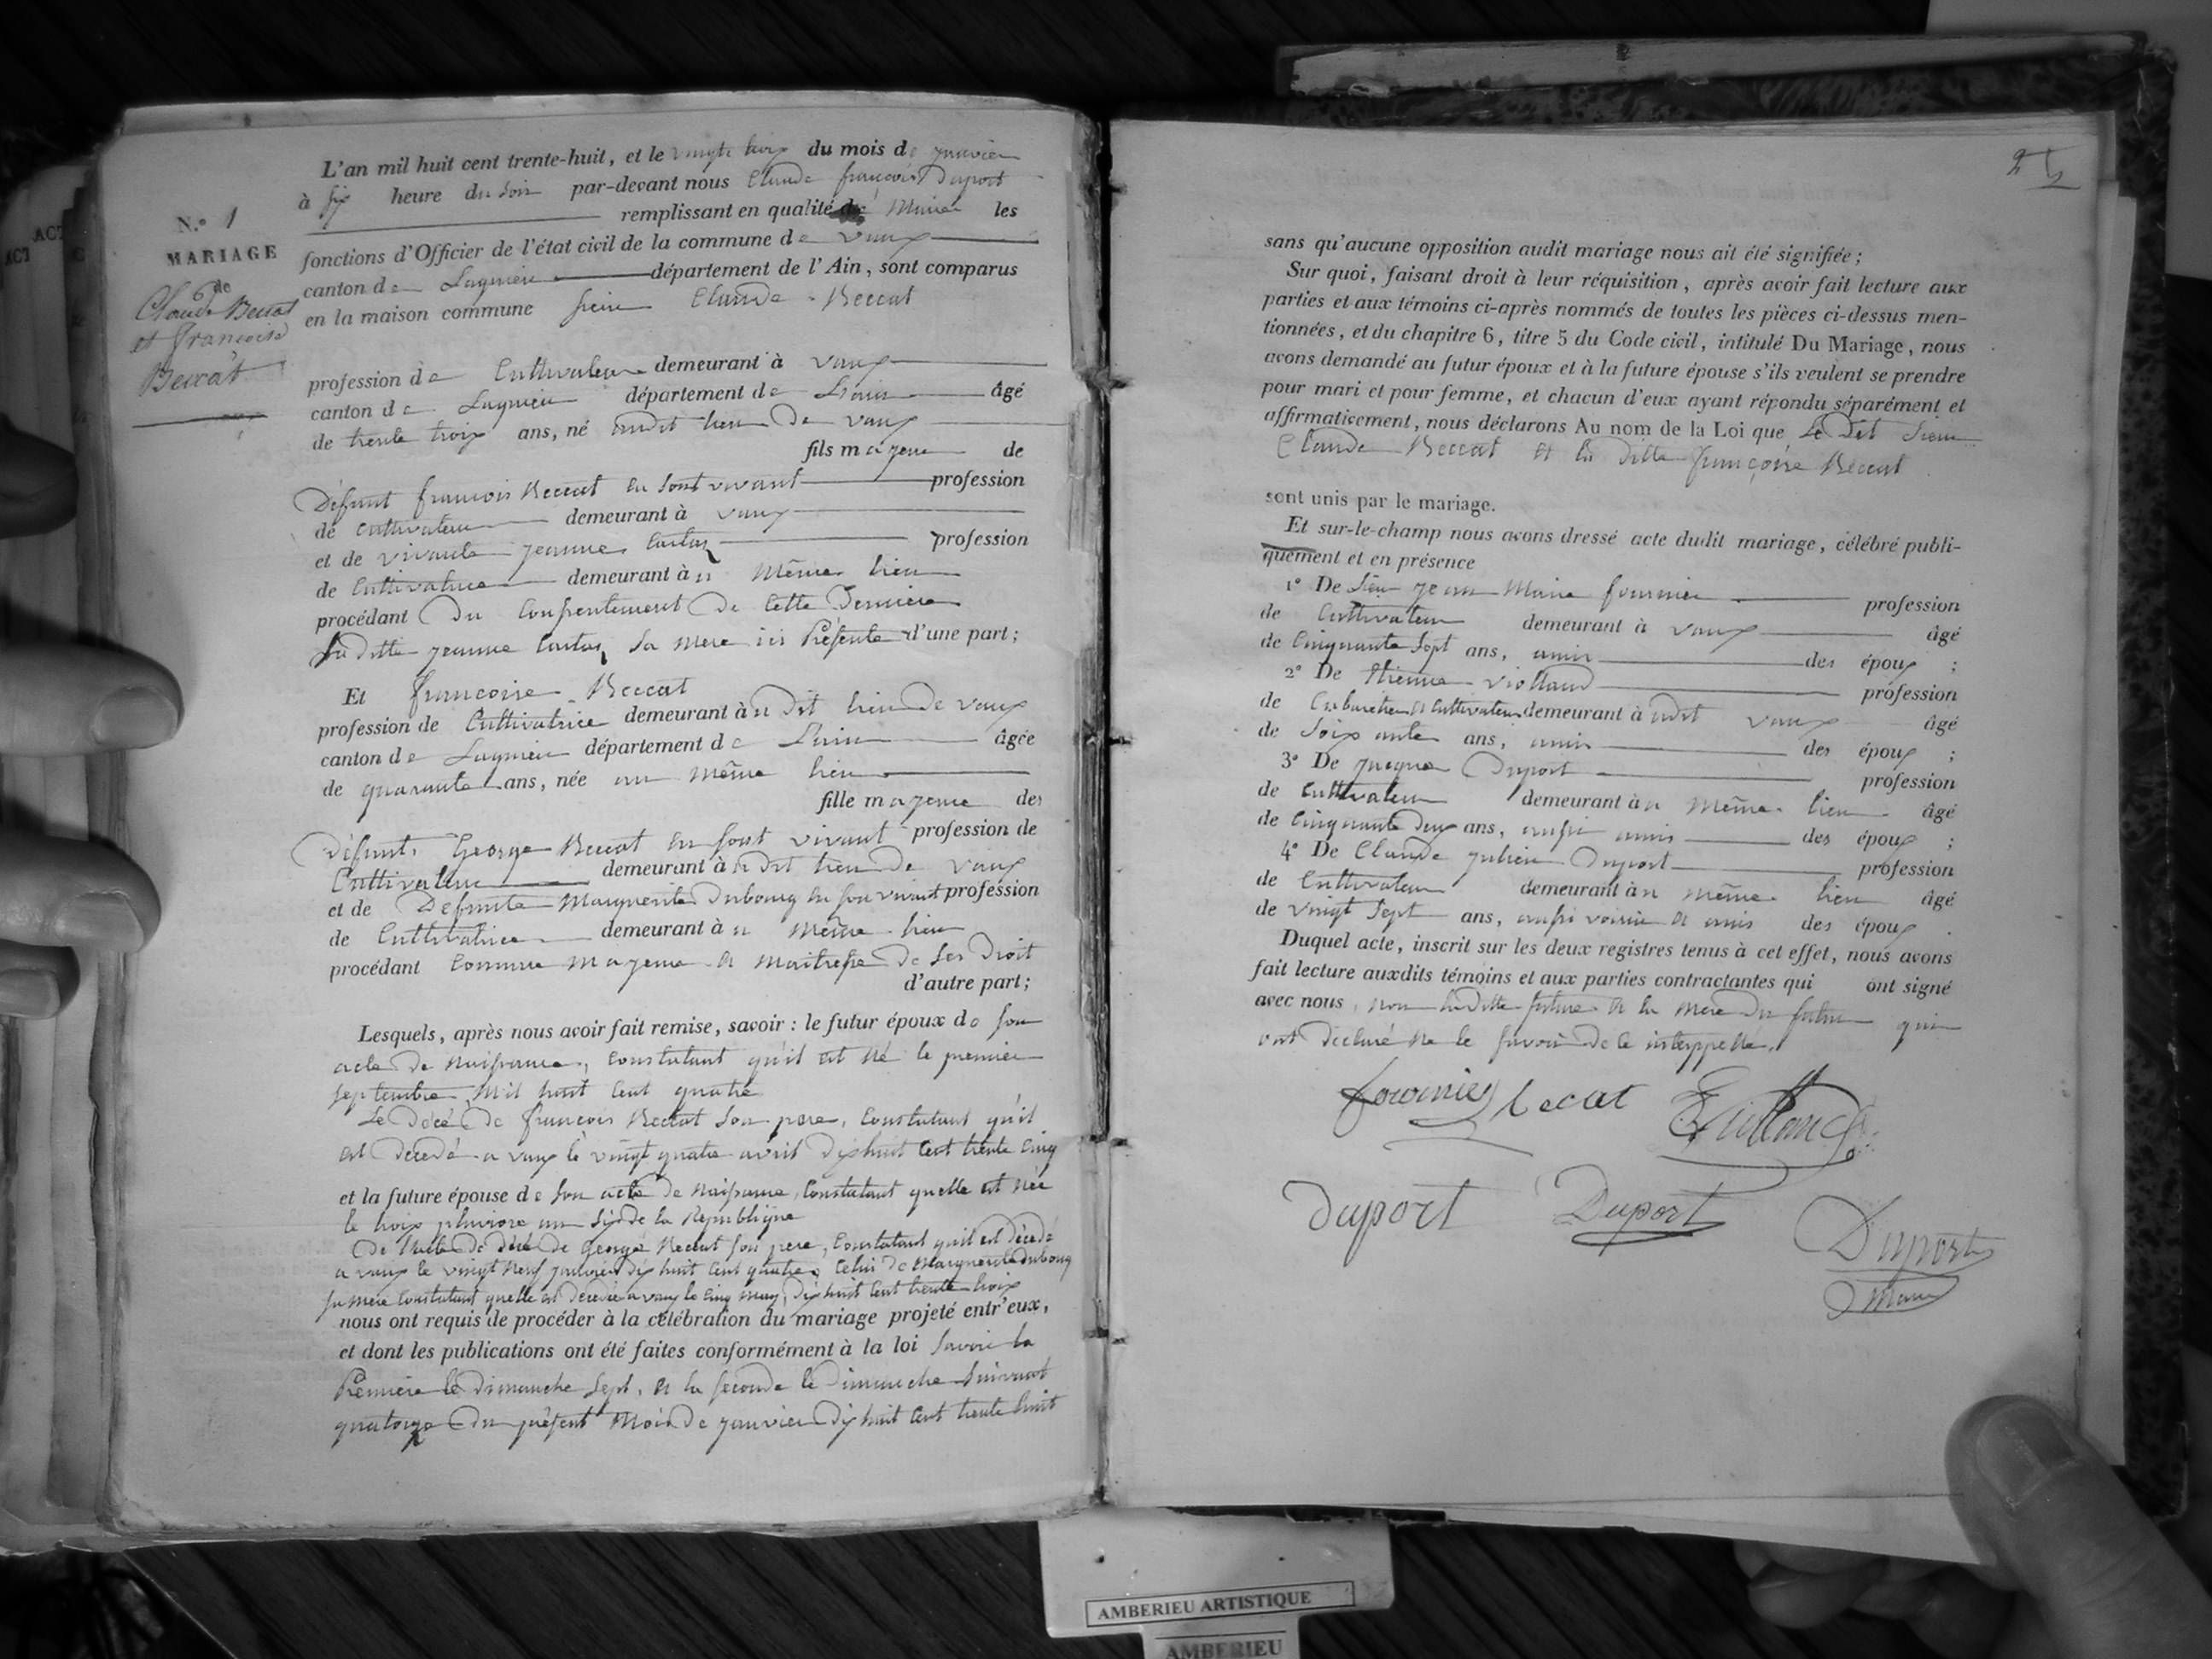 N.º 1
MARIAGE
de
Claude Beccat
et françoise
Beccat
L'an mil huit cent trente-huit, et le vingt trois du mois de janvier
à six heure du soir par-devant nous Claude françois Duport
remplissant en qualité de Maire les
fonctions d'Officier de l'état civil de la commune de vaux
canton de Lagnieu département de l'Ain, sont comparus
en la maison commune sieur Claude Beccat
profession de Cultivateur demeurant à vaux
canton de Lagnieu département de L'ain âgé
de trente trois ans, né audit lieu de vaux
fils majeur de
Défunt françois Beccat en sont vivant profession
de Cultivateur demeurant à vaux
et de vivante jeanne profession
de Cultivatrice demeurant au Même lieu
procédant du Consentement de Cette Derniere
Laditte jeanne sa mere ici Présente d'une part;
Et françoise Beccat
profession de Cultivatrice demeurant au dit lieu de vaux
canton de Lagnieu département de L'ain âgée
de quarante ans, née au Même lieu
fille majeure des
Défunts George Beccat en sont vivant profession de
Cultivateur demeurant au dit lieu de vaux
et de Défunte Marguerite Dubourg en son vivant profession
de Cultivatrice demeurant au Même lieu
procédant Comme majeure et Maitresse de ses Droit
d'autre part;
Lesquels, après nous avoir fait remise, savoir: le futur époux de son
acte de Naissance, Constatant qu'il est Né le premier
septembre Mil huit Cent quatre
Le décé de françois Beccat son pere, Constatant qu'il
est décedé a vaux le vingt quatre avril dixhuit Cent trente Cinq
et la future épouse de son acte de Naissance, Constatant quelle est Née
le trois pluviose an six de la Republique
De l'acte de décé de George Beccat son pere, Constatant qu'il est décedé
a vaux le vingt Neuf janvier dix huit Cent quatre, Celui de Marguerite Dubourg
sa mere Constatant quelle est decedée a vaux le Cinq may, dixhuit Cent trente trois
nous ont requis de procéder à la célébration du mariage projeté entr'eux,
et dont les publications ont été faites conformément à la loi savoir la
Premiere le dimanche sept, et la seconde le dimanche suivant
quatorze du présent Mois de janvier dixhuit Cent trente huit
sans qu'aucune opposition audit mariage nous ait été signifiée;
Sur quoi, faisant droit à leur réquisition, après avoir fait lecture aux
parties et aux témoins ci-après nommés de toutes les pièces ci-dessus men-
tionnées, et du chapitre 6, titre 5 du Code civil, intitulé Du Mariage, nous
avons demandé au futur époux et à la future épouse s'ils veulent se prendre
pour mari et pour femme, et chacun d'eux ayant répondu séparément et
affirmativement, nous déclarons Au nom de la Loi que Le Dit sieur
Claude Beccat et la ditte françoise Beccat
sont unis par le mariage.
Et sur-le-champ nous avons dressé acte dudit mariage, célébré publi-
quement et en présence
1º De sieur jean Marie fournier profession
de Cultivateur demeurant à vaux âgé
de Cinquante sept ans, amis des époux;
2º De Etienne violland profession
de Cabaretier et Cultivateur demeurant à udit vaux âgé
de soixante ans, amis des époux;
3º De jacque Duport profession
de Cultivateur demeurant au Même lieu âgé
de Cinquante deux ans, aussi amis des époux;
4º De Claude julien Duport profession
de Cultivateur demeurant au même lieu âgé
de vingt sept ans, aussi voisin et amis des époux.
Duquel acte, inscrit sur les deux registres tenus à cet effet, nous avons
fait lecture auxdits témoins et aux parties contractantes qui ont signé
avec nous, non laditte future et la mere du futur qui
ont déclaré ne le savoir de ce interppellé.
fournier becat
Duport Duport
Duport
Maire
AMBERIEU ARTISTIQUE
AMBERIEU